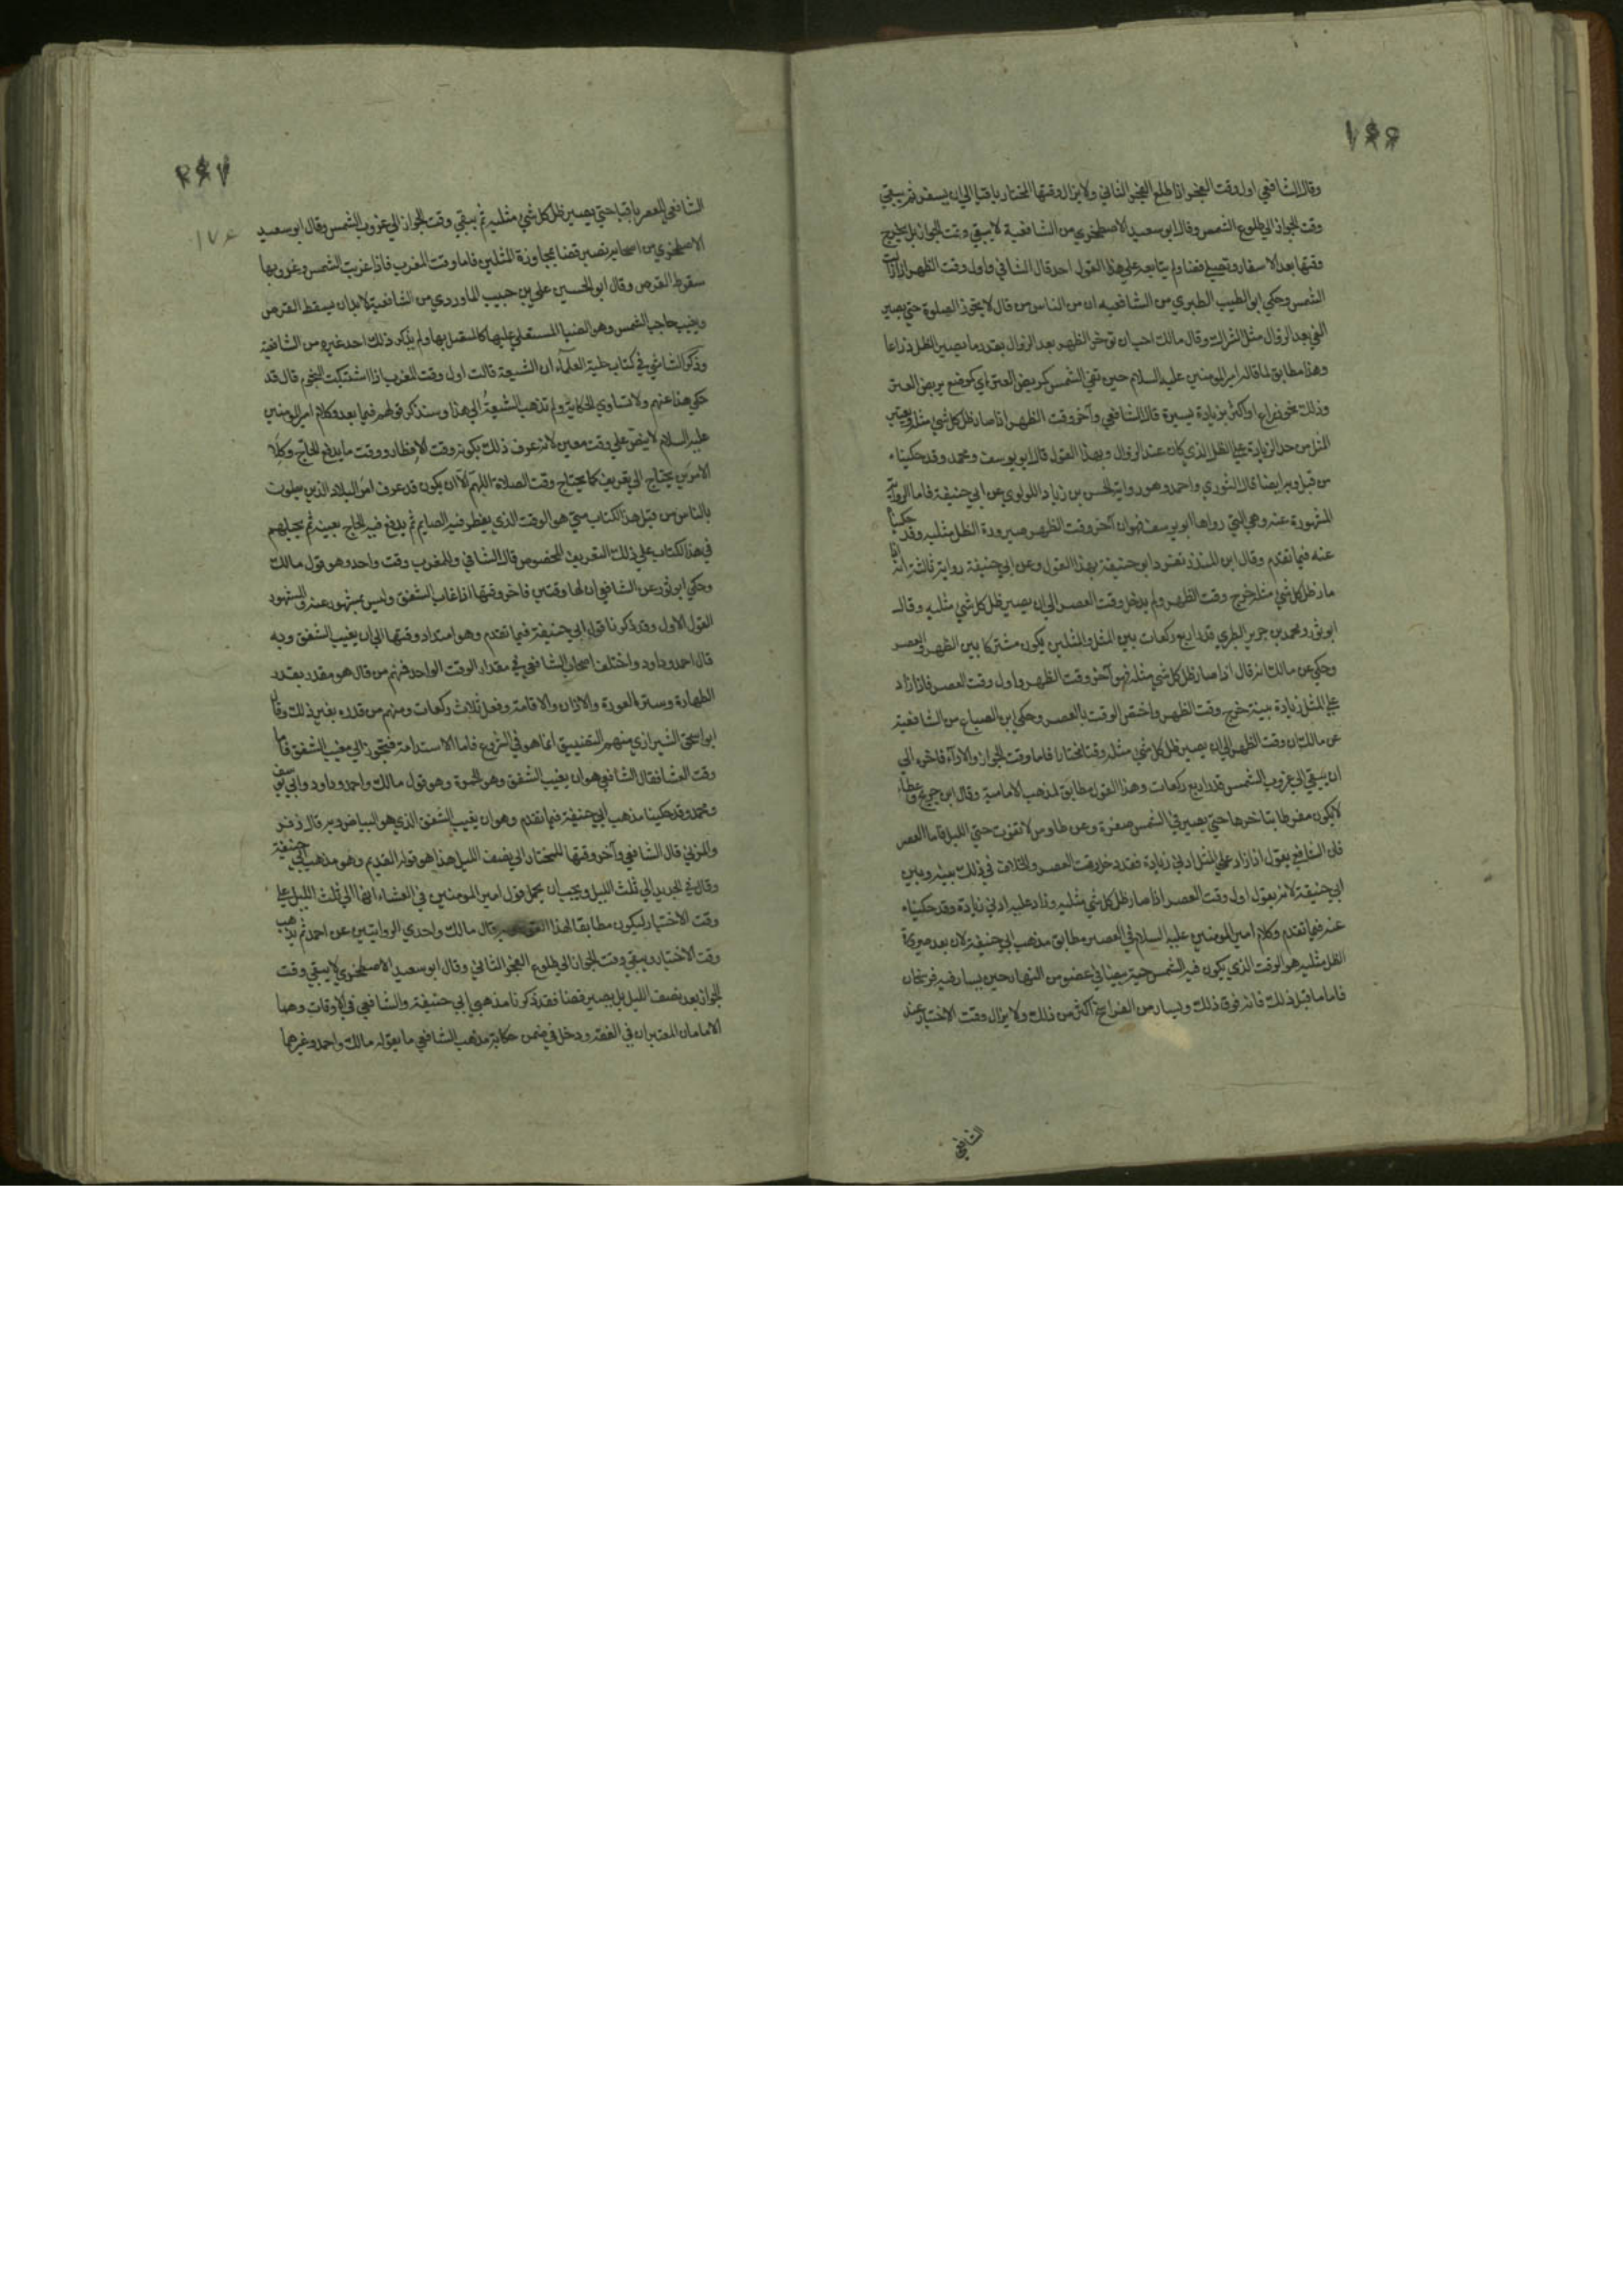 وقال الشافعي اول وقت الفجر اذا طلع الفجر الثاني ولا يزال وقتها المختار باقيا الي ان يسفر ثم يبقي
وقت الجواز الي طلوع الشمس وقال ابو سعيد الاصطخري من الشافعية لا يبقي وقت الجواز بل يخرج
وقتها بعد الاسفار وتصير قضا ولم يتابعه علي هذا القول احد قال الشافي واول وقت الظهر اذا زالت
الشمس وحكي ابو الطيب الطبري من الشافعيه ان من الناس من قال لا يجوز الصلوة حتي يصير
الفي بعد الزوال مثل الشراك وقال مالك احب ان توخر الظهر بعد الزوال بقدر ما يصير الظل ذراعا
وهذا مطابق لما قاله امير المومنين عليه السلام حين تفي الشمس كمربض العنز اي كموضع يربض العنز
وذلك نحو ذراع او اكثر بزيادة يسيرة قال الشافعي وآخر وقت الظهر اذا صار ظل كل شي مثله ويعتبر
المثل من حد الزيادة علي الظل الذي كان عند الزوال وبهذا القول قال ابو يوسف ومحمد وقد حكيناه
من قبل وبه ايضا قال الثوري واحمد وهو رواية الحسن بن زياد اللولوي عن ابي حنيفة فاما الرواية
المشهورة عنه وهي التي رواها ابو يوسف فهو ان آخر وقت الظهر صيرورة الظل مثليه وقد حكيناه
عنه فيما تقدم وقال ابن المنذر تفرد ابو حنيفة بهذا القول وعن ابي حنيفة رواية ثالثة انه اذا
صار ظل كل شي مثله خرج وقت الظهر ولم يدخل وقت العصر الي ان يصير ظل كل شي مثليه وقال
ابو ثور ومحمد بن جرير الطبري قدر اربع ركعات بين المثل والمثلين يكون مشتركا بين الظهر والعصر
وحكي عن مالك انه قال اذا صار ظل كل شي مثله فهو آخر وقت الظهر واول وقت العصر فاذا زاد
علي المثل زيادة بينة خرج وقت الظهر واختص الوقت بالعصر وحكي ابن الصباغ من الشافعية
عن مالك ان وقت الظهر الي ان يصير ظل كل شي مثله وقتا مختارا فاما وقت الجواز والاداء فاخره الي
ان يبقي الي غروب الشمس قدر اربع ركعات وهذا القول مطابق لمذهب الامامية وقال ابن جريج وعطاء
لا يكون مفرطا بتاخرها حتي يصير في الشمس صفرة وعن طاوس لا تفوت حتي الليل فاما العصر
فان الشافعي يقول اذا زاد علي المثل ادني زيادة فقد دخل وقت العصر والخلاف في ذلك بينه وبين
ابي حنيفة لانه يقول اول وقت العصر اذا صار ظل كل شي مثليه وزاد عليه ادني زيادة وقد حكيناه
عنه فيما تقدم وكلام امير المومنين عليه السلام في العصر مطابق مذهب ابي حنيفة لان بعد صيرورة
الظل مثليه هو الوقت الذي يكون فيه الشمس حية بيضا في عضو من النهار حين يسار فيه فرسخان
فاما ما قبل ذلك فانه فوق ذلك ويسار من الفراسخ اكثر من ذلك ولا يزال وقت الاختيار عند
الشافعي
الشافعي للعصر باقيا حتي يصير ظل كل شي مثليه ثم يبقي وقت الجواز الي غروب الشمس وقال ابو سعيد
الاصطخري من اصحابه تصير قضا بمجاوزة المثلين فاما وقت المغرب فاذا غربت الشمس وغروبها
سقوط القرص وقال ابو الحسين علي بن حبيب الماوردي من الشافعية لا بد ان يسقط القرص
ويغيب حاجب الشمس وهو الضيا المستعلي عليها كالمتصل بها ولم يذكر ذلك احد غيره من الشافعية
وذكر الشاشي في كتاب حلية العلماء ان الشيعة قالت اول وقت المغرب اذا اشتبكت النجوم قال قد
حكي هذا عنهم ولا تساوي الحكاية ولم تذهب الشيعة الي هذا وسنذكر قولهم فيما بعد وكلام امير المومنين
عليه السلام لا ينص علي وقت معين لانه عرف ذلك بكونه وقت الافطار ووقت ما يدفع الحاج وكلا
الامرين يحتاج الي تعريف كما يحتاج وقت الصلاة اللهم الا ان يكون قد عرف امر البلاد الذين يصلون
بالناس من قبل هذا الكتاب متي هو الوقت الذي يفطر فيه الصايم ثم يدفع فيه الحاج بعينه ثم يحيلهم
في هذا الكتاب علي ذلك التعريف المخصوص قال الشافي وللمغرب وقت واحد وهو قول مالك
وحكي ابو ثور عن الشافعي ان لها وقتين فاخر وقتها اذا غاب الشفق وليس بمشهور عنه والمشهور
القول الاول وقد ذكرنا قول ابي حنيفة فيما تقدم وهو امتداد وقتها الي ان يغيب الشفق وبه
قال احمد وداود واختلف اصحاب الشافعي في مقدار الوقت الواحد فمنهم من قال هو مقدر بقدر
الطهارة وستر العورة والاذان والاقامة وفعل ثلاث ركعات ومنهم من قدره بغير ذلك وقال
ابو اسحق الشيرازي منهم التضييق انما هو في الشروع فاما الاستدامة فتجوز الي مغيب الشفق فاما
وقت العشا فقال الشافعي هو ان يغيب الشفق وهو الحمرة وهو قول مالك واحمد وداود وابي يوسف
ومحمد وقد حكينا مذهب ابي حنيفة فيما تقدم وهو ان يغيب الشفق الذي هو البياض وبه قال زفر
والمزني قال الشافي وآخر وقتها المختار الي نصف الليل هذا هو قوله القديم وهو مذهب ابي حنيفة
وقال في الجديد الي ثلث الليل ويجب ان يحمل قول امير المومنين في العشاء انها الي ثلث الليل علي
وقت الاختيار ليكون مطابقا لهذا القول وبه قال مالك واحدي الروايتين عن احمد ثم يذهب
وقت الاختيار ويبقي وقت الجواز الي طلوع الفجر الثاني وقال ابو سعيد الاصطخري لا يبقي وقت
الجواز بعد نصف الليل بل يصير قضا فقد ذكرنا مذهبي ابي حنيفة والشافعي في الاوقات وهما
الامامان المعتبران في الفقه ودخل في ضمن حكاية مذهب الشافعي ما يقوله مالك واحمد وغيرهما